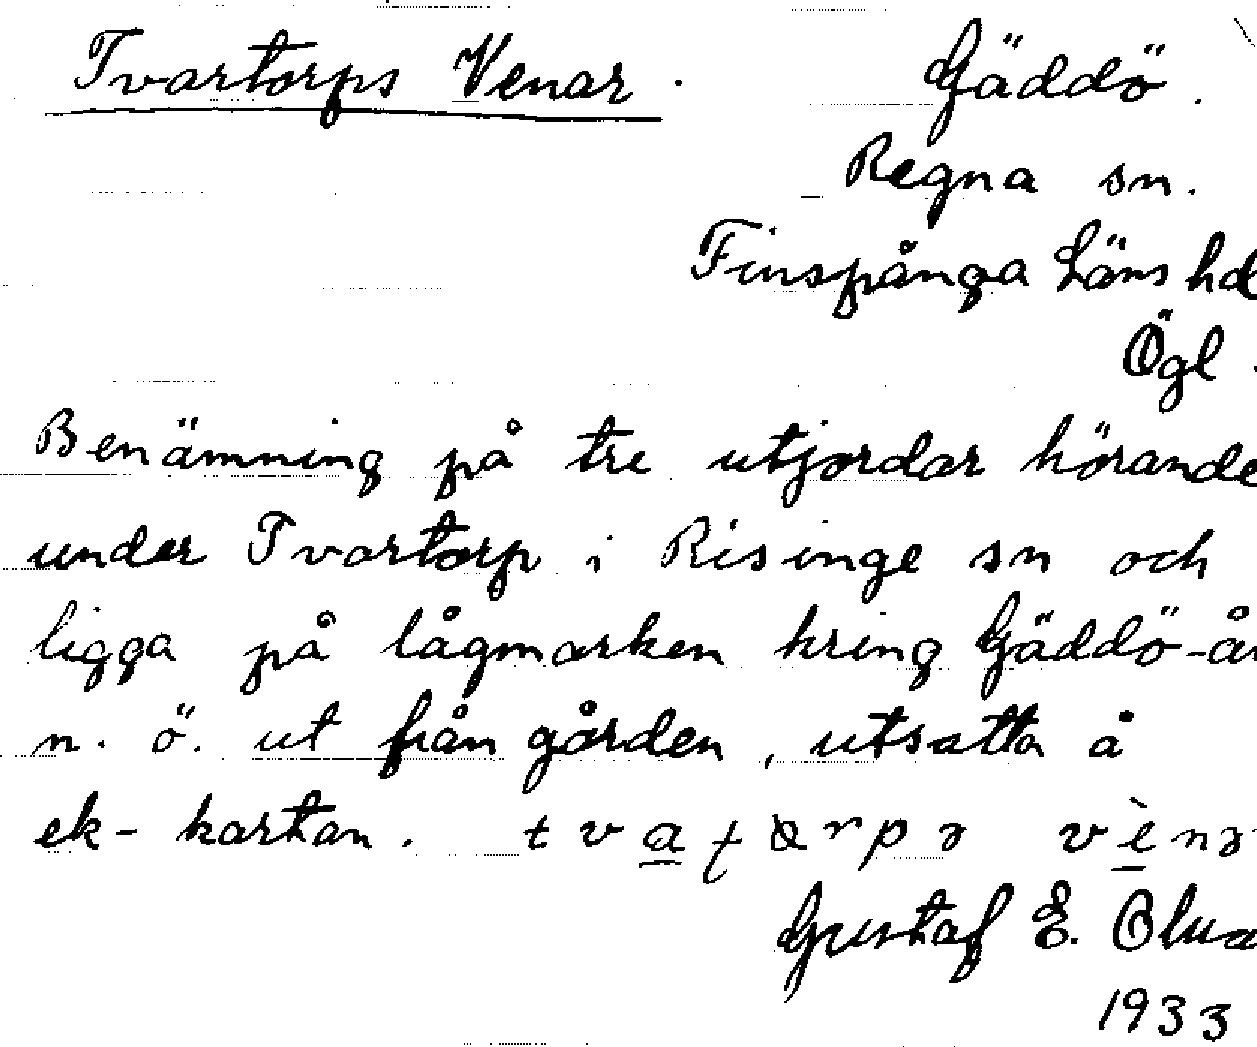 Tvartorps Venar. Gäddö.
Regna sn.
Finspånga Läns hd
Ögl.
Benämning på tre utjordar hörande
under Tvartorp i Risinge sn och
ligga på lågmarken kring Gäddö-ån
n. ö. ut från gården, utsatta å
ek-kartan.
Gustaf E.
1933